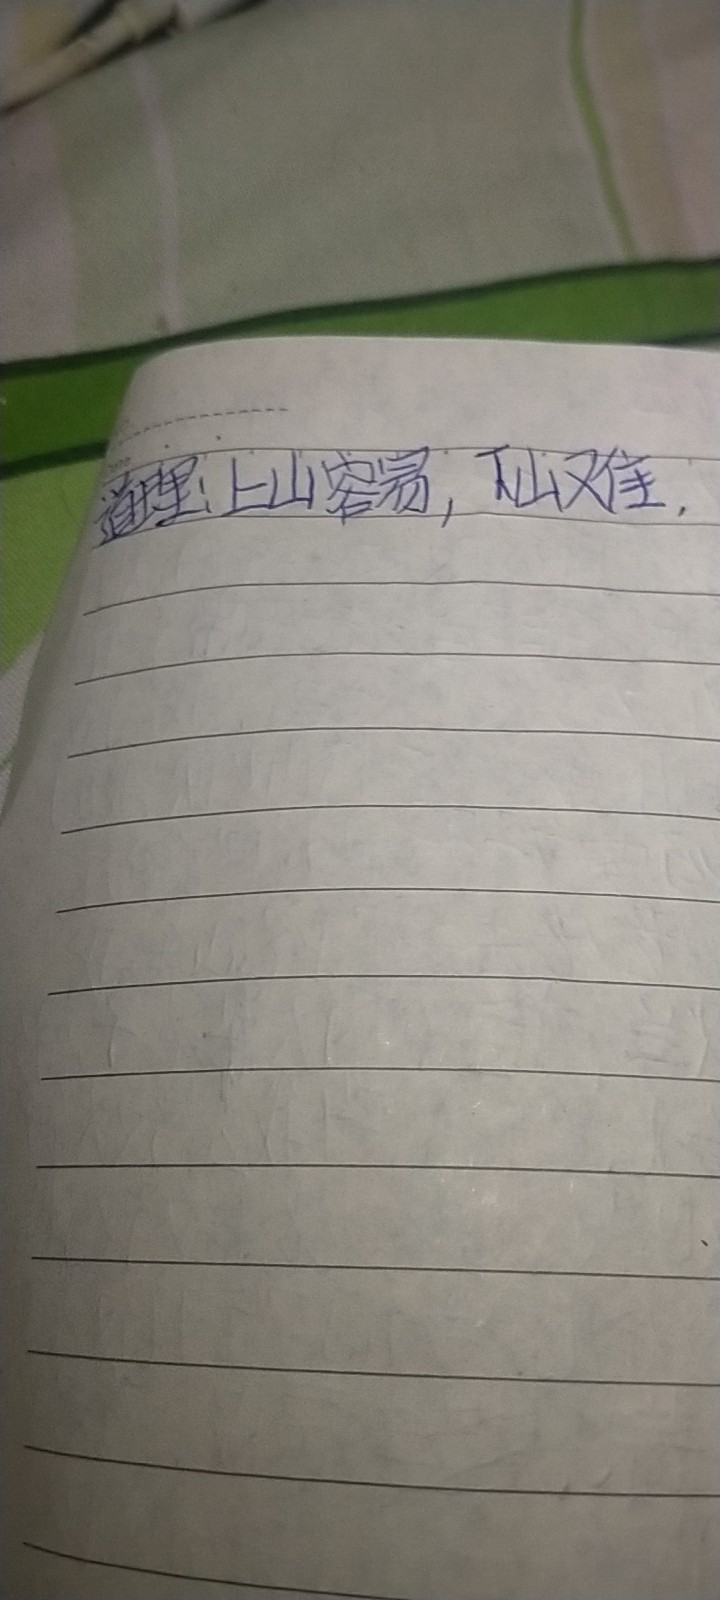 道理:上山容易,下山难.